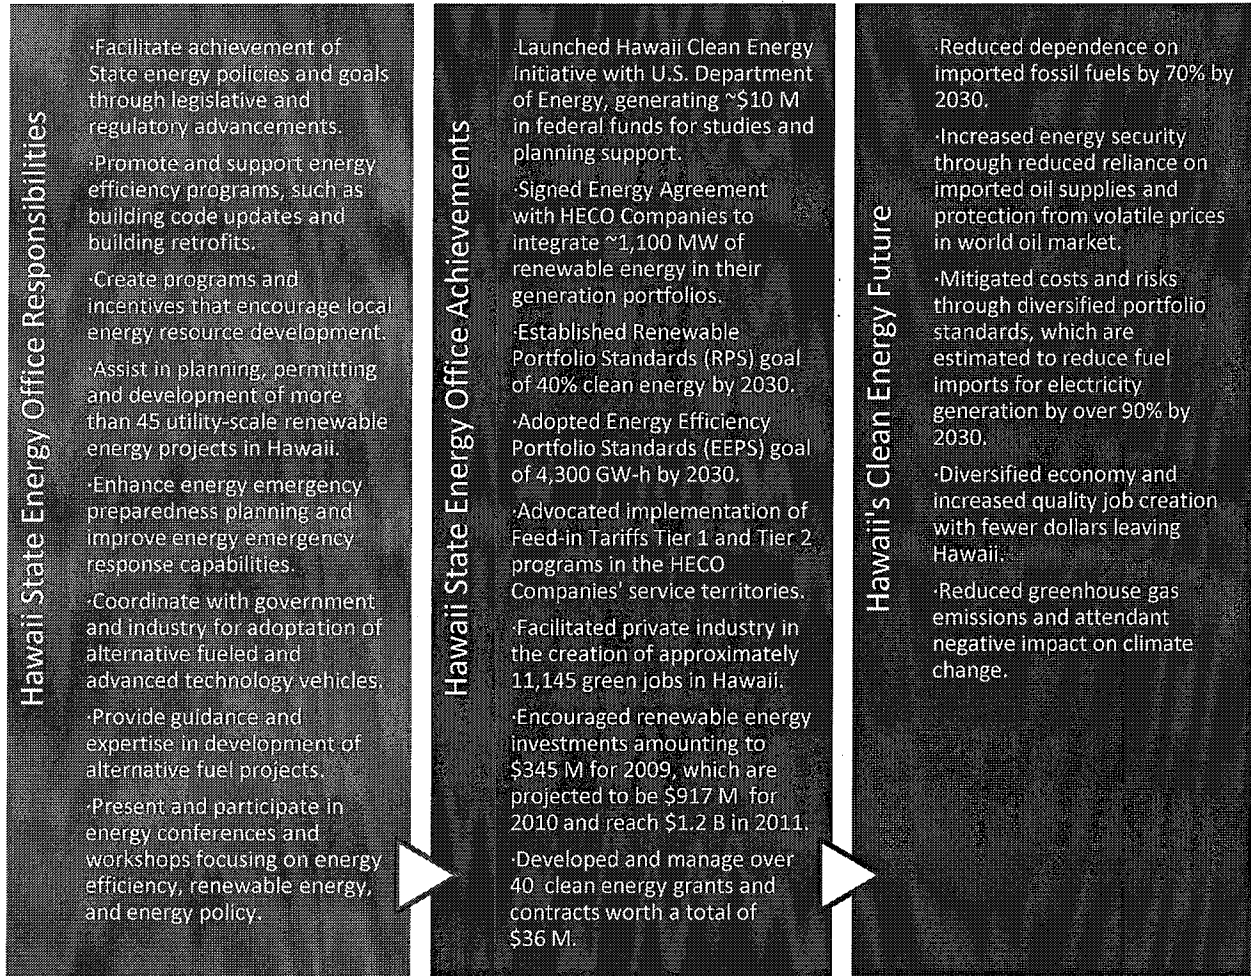 Hawaii State Energy Office Responsibilities
·Facilitate achievement of
State energy policies and goals
through legislative and
regulatory advancements.
·Promote and support energy
efficiency programs, such as
building code updates and
building retrofits.
·Create programs and
incentives that encourage local
energy resource development.
·Assist in planning, permitting
and development of more
than 45 utility-scale renewable
energy projects in Hawaii.
·Enhance energy emergency
preparedness planning and
improve energy emergency
response capabilities.
·Coordinate with government
and industry for adoptation of
alternative fueled and
advanced technology vehicles.
·Provide guidance and
expertise in development of
alternative fuel projects.
·Present and participate in
energy conferences and
workshops focusing on energy
efficiency, renewable energy,
and energy policy.
Hawaii State Energy Office Achievements
·Launched Hawaii Clean Energy
Initiative with U.S. Department
of Energy, generating ~$10 M
in federal funds for studies and
planning support.
·Signed Energy Agreement
with HECO Companies to
integrate ~1,100 MW of
renewable energy in their
generation portfolios.
·Established Renewable
Portfolio Standards (RPS) goal
of 40% clean energy by 2030.
·Adopted Energy Efficiency
Portfolio Standards (EEPS) goal
of 4,300 GW-h by 2030.
·Advocated implementation of
Feed-in Tariffs Tier 1 and Tier 2
programs in the HECO
Companies' service territories.
·Facilitated private industry in
the creation of approximately
11,145 green jobs in Hawaii.
·Encouraged renewable energy
investments amounting to
$345 M for 2009, which are
projected to be $917 M for
2010 and reach $1.2 B in 2011.
·Developed and manage over
40 clean energy grants and
contracts worth a total of
$36 M.
Hawaii's Clean Energy Future
·Reduced dependence on
imported fossil fuels by 70% by
2030.
·Increased energy security
through reduced reliance on
imported oil supplies and
protection from volatile prices
in world oil market.
·Mitigated costs and risks
through diversified portfolio
standards, which are
estimated to reduce fuel
imports for electricity
generation by over 90% by
2030.
·Diversified economy and
increased quality job creation
with fewer dollars leaving
Hawaii.
·Reduced greenhouse gas
emissions and attendant
negative impact on climate
change.